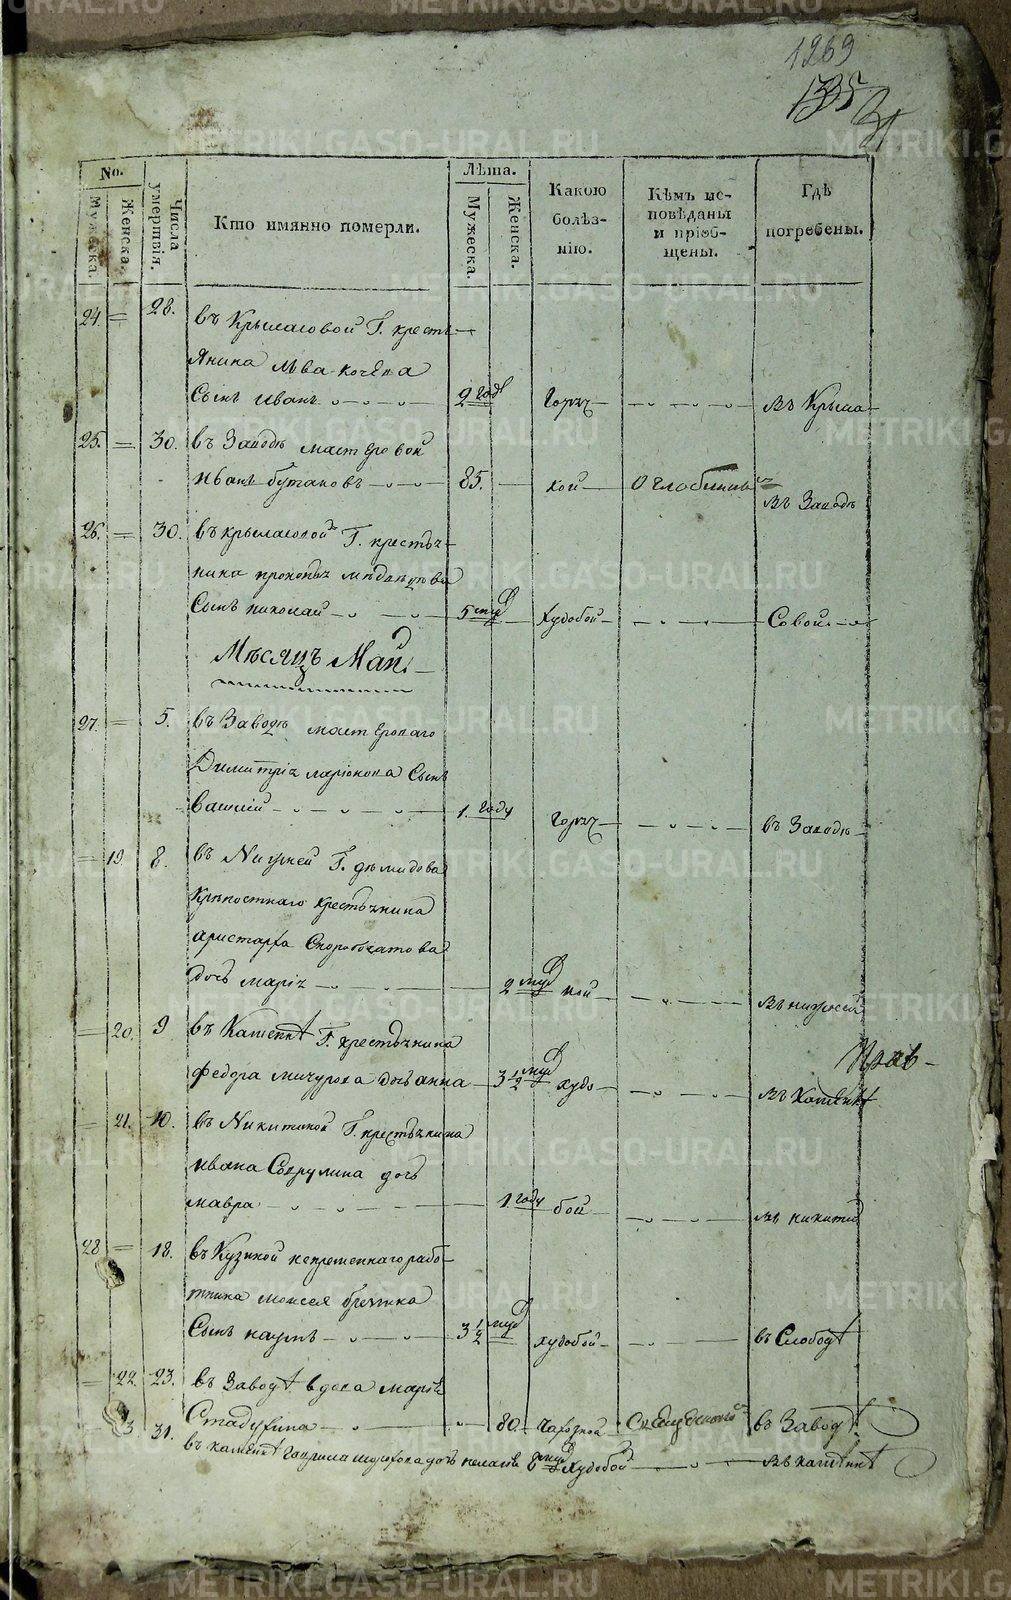 1269
1335
31
No. Лѣта.
Мужеска. Женска. Числа умертвія. Кто имянно померли. Мужеска. Женска. Какою болѣзнію. Кѣмъ исповѣданы и пріобщены. Гдѣ погребены.
24. 28. въ Крыласовой Г. кресть
янина Льва
Сынъ Иванъ 2 год Горяч въ Крыла
25. 30. въ Заводѣ мастеровой
Иванъ Бутаковъ 85. кой Оглоблинъ въ Заводѣ
26. 30. въ Крыласовой Г. крестья
нина Прокопья
Сынъ Николай 5 мцд Худобой Совой
Мѣсяцъ Май
27. 5. въ Заводѣ мастероваго
Димитрія Ларіонова Сынъ
Василій 1. году Горяч въ Заводѣ
19. 8. въ Нижней Г. Демидова
Крѣпостнаго Крестьянина
Аристарха Скоробогатова
дочь Марія 2 мцд кой въ Нижней
20. 9 въ Каменкѣ Г. Крестьянина
Федора Мичурова дочь Анна 3 1/2 мцд худо въ Каменкѣ
21. 10. въ Никитиной Г. крестьянина
Ивана дочь
Мавра 1. году бой въ Никитин
28 18. въ Кузиной непременнаго работ
ника Моисея
Сынъ Наумъ 3 1/2 мцд худобой въ Слободѣ
22. 23. въ Заводѣ вдова Марія
Стадухина 80. Чахоткой въ Заводѣ
3 31. въ Каменкѣ Гаврила дочь Пелагія 8 мцд Худобой въ Каменкѣ